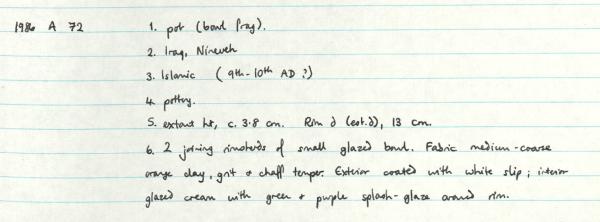 1986 A 72 1. pot (bowl frag).
2. Iraq, Nineveh
3. Islamic (9th-10th AD ?)
4. pottery.
5. extant ht, c. 3.8 cm. Rim d (est.d), 13 cm.
6. 2 joining rimsherds of small glazed bowl. Fabric medium-coarse
orange clay, grit & chaff temper. Exterior coated with white slip; interior
glazed cream with green & purple splash-glaze around rim.